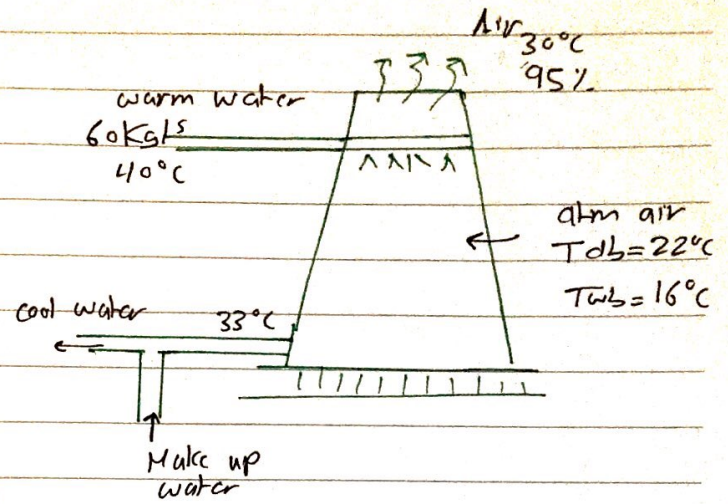 Air
30°C
95%
warm water
60Kg/s
40°C
atm air
Tdb=22°C
Twb=16°C
cool water
33°C
Make up
water